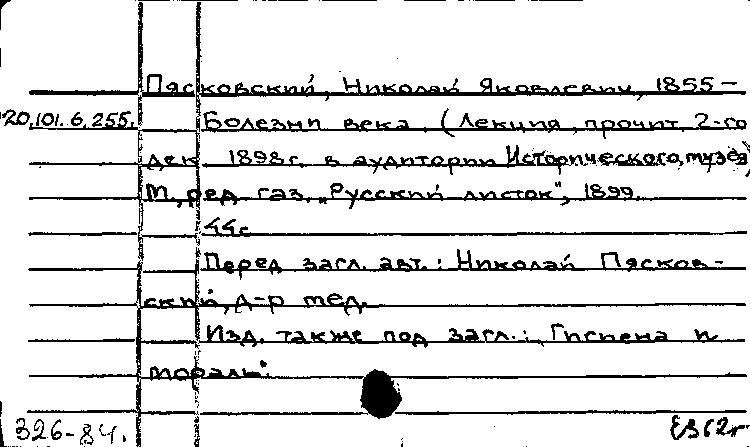 Пясковский, Николай Яковлевич, 1855-
20.101.6.255. Болезни века. (Лекция, прочит. 2-го
дек. 1898г. в аудитории Исторического музея)
М., ред. газ. „Русский листок", 1899.
44с
Перед загл. авт.: Николай Пясков-
ский, д-р мед.
Изд. также под загл.: „Гигиена и
мораль".
326-84.